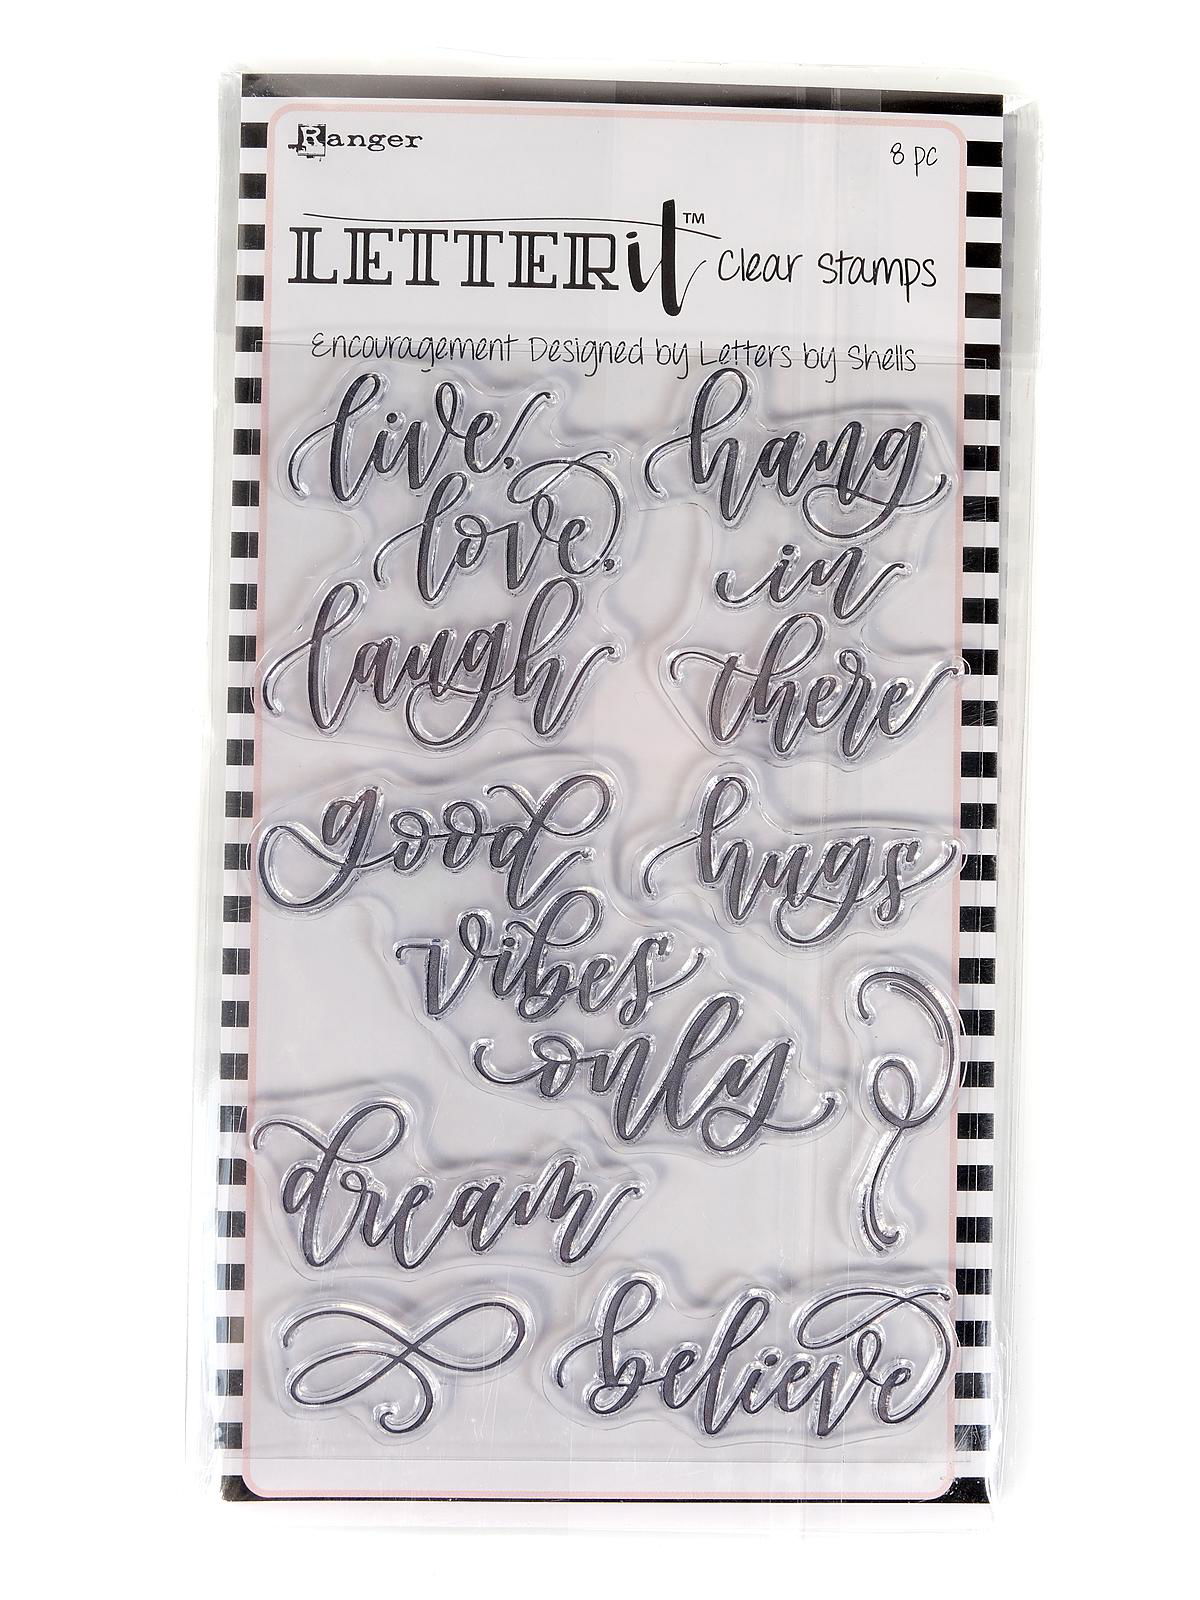 Ranger
8 pc
LETTERit™ Clear Stamps
Encouragement Designed by Letters by Shells
live.
love.
laugh
hang
in
there
good
vibes
only
hugs
dream
believe